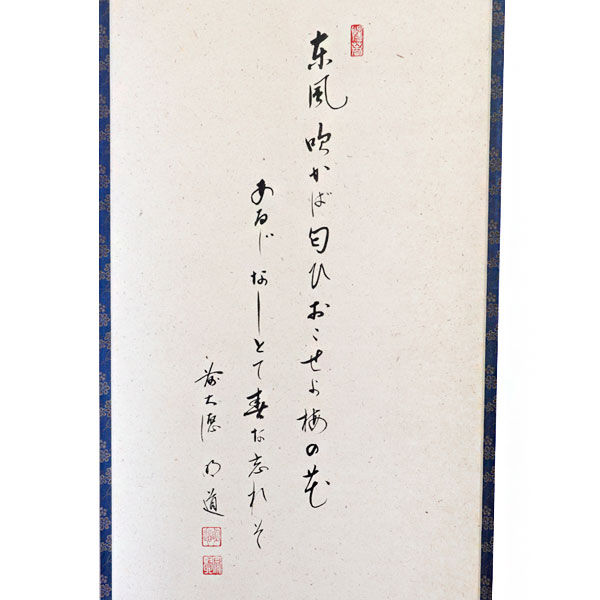 東風吹かば匂ひおこせよ梅の花
あるじなしとて春な忘れそ
前大徳 明道